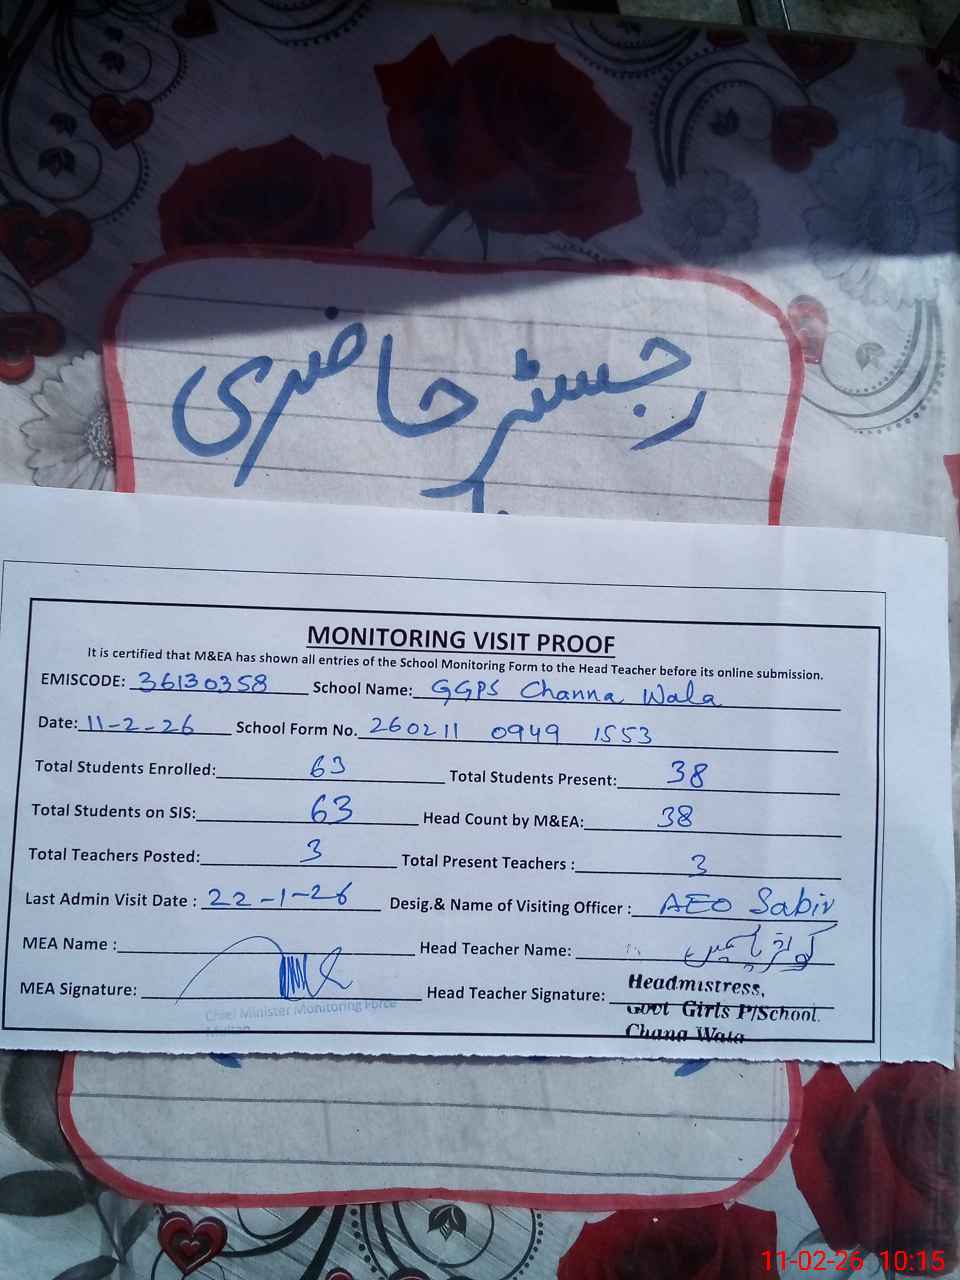 رجسٹر حاضری
MONITORING VISIT PROOF
It is certified that M&EA has shown all entries of the School Monitoring Form to the Head Teacher before its online submission.
EMISCODE: 36130358 School Name: GGPS Channa Wala
Date: 11-2-26 School Form No. 260211 0949 1553
Total Students Enrolled: 63 Total Students Present: 38
Total Students on SIS: 63 Head Count by M&EA: 38
Total Teachers Posted: 3 Total Present Teachers : 3
Last Admin Visit Date : 22-1-26 Desig.& Name of Visiting Officer : AEO Sabir
MEA Name : Head Teacher Name:
MEA Signature: Head Teacher Signature:
Chief Minister Monitoring Force
Multan
Headmistress,
Govt Girls P/School.
Chana Wala
11-02-26 10:15